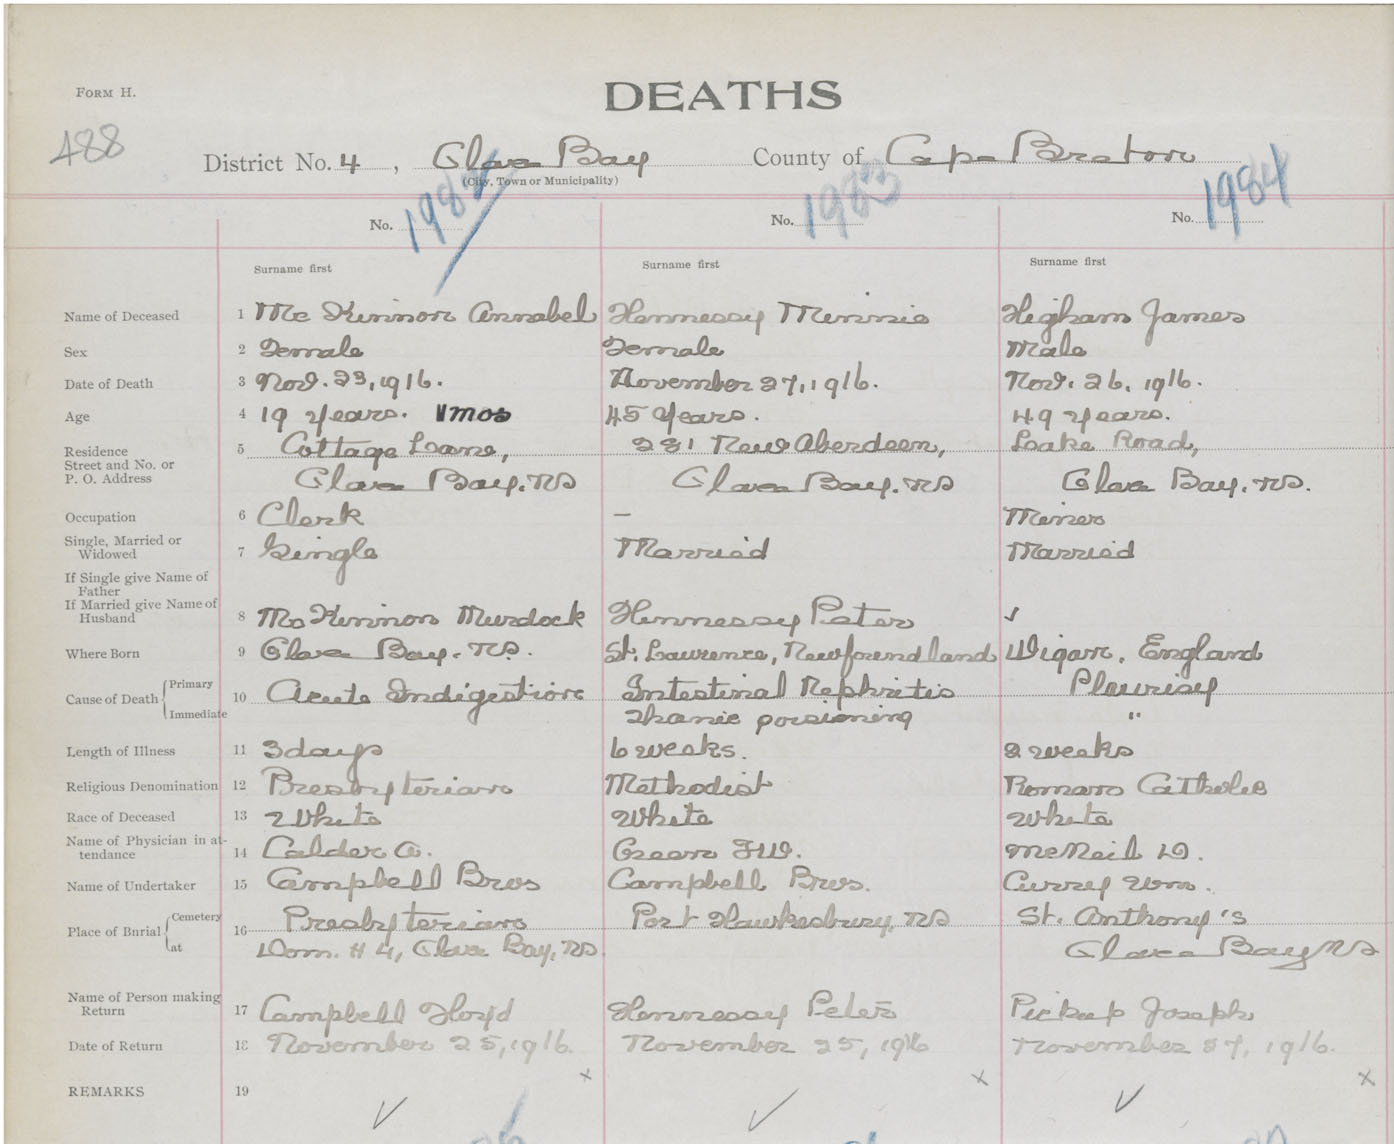 FORM H.
DEATHS
488
District No. 4, Glace Bay County of Cape Breton
(City, Town or Municipality)
No. 1982 No. 1983 No. 1984
Surname first Surname first Surname first
Name of Deceased 1 McKinnon Annabel Hennessy Minnie Higham James
Sex 2 Female Female Male
Date of Death 3 Nov. 23, 1916. November 27, 1916. Nov. 26, 1916.
Age 4 19 years. 1 mos 45 years. 49 years.
Residence 5 Cottage Lane, 231 New Aberdeen, Lake Road,
Street and No. or
P. O. Address Glace Bay. NS Glace Bay. NS Glace Bay. NS.
Occupation 6 Clerk – Miner
Single, Married or
Widowed 7 Single Married Married
If Single give Name of
Father
If Married give Name of
Husband 8 McKinnon Murdock Hennessy Peter ✓
Where Born 9 Glace Bay. NS. St. Lawrence, Newfoundland Wigan, England
Cause of Death { Primary 10 Acute Indigestion Intestinal Nephritis Pleurisy
Immediate poisioning "
Length of Illness 11 3 days 6 weeks. 2 weeks
Religious Denomination 12 Presbyterian Methodist Roman Catholic
Race of Deceased 13 White White White
Name of Physician in at-
tendance 14 Calder A. Green F.W. McNeil D.
Name of Undertaker 15 Campbell Bros Campbell Bros. Curry Wm.
Place of Burial { Cemetery 16 Presbyterian Port Hawkesbury, NS St. Anthony's
at Dom. # 4, Glace Bay, NS. Glace Bay NS
Name of Person making
Return 17 Campbell Floyd Hennessy Peter Pickup Joseph
Date of Return 18 November 25, 1916. November 25, 1916 November 27, 1916.
REMARKS 19